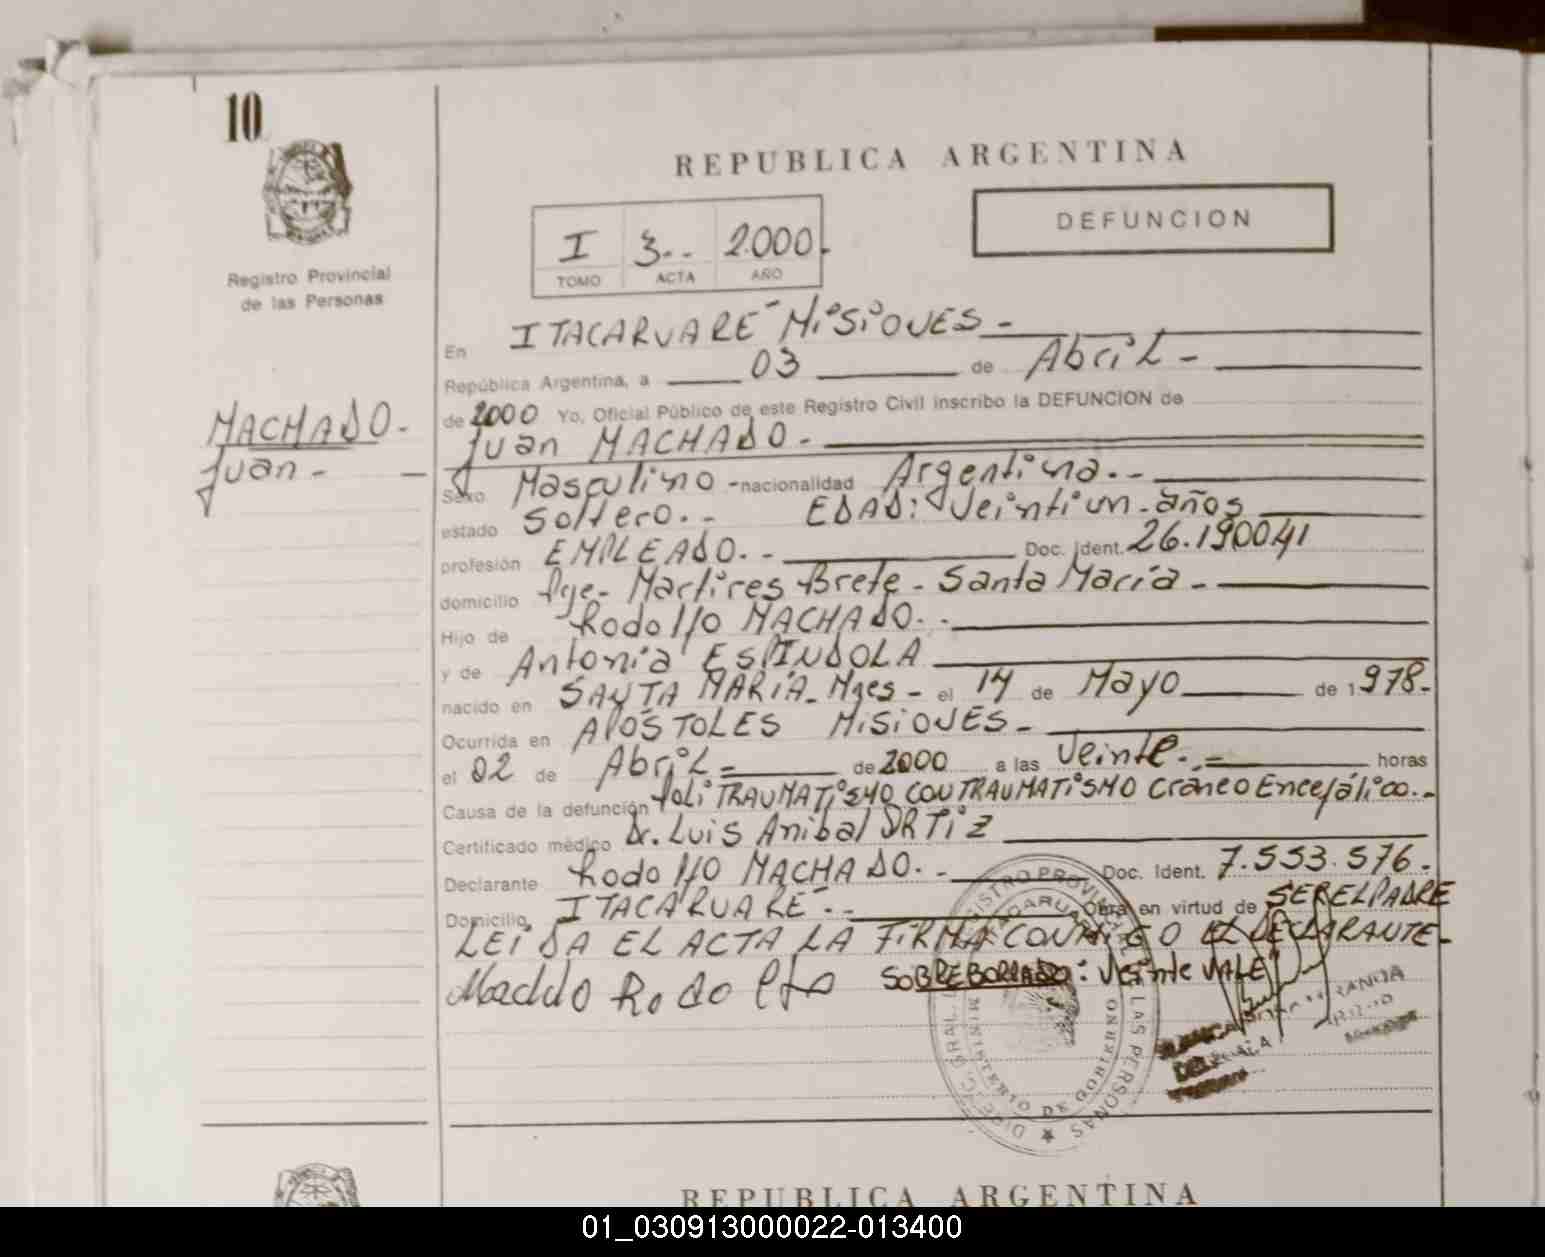 10
REPUBLICA ARGENTINA
DEFUNCION
I 3-- 2000-
TOMO ACTA AÑO
Registro Provincial
de las Personas
MACHADO-
Juan-
En ITACARUARE-MiSiONES-
República Argentina, a 03 de Abril-
de 2000 Yo, Oficial Público de este Registro Civil inscribo la DEFUNCION de
Juan MACHADO-
Sexo Masculino -nacionalidad Argentina.--
estado Soltero.- EDAD: Veintiun-años
profesión EMPLEADO.-- Doc. Ident. 26.190041
domicilio Pje- Martires Brete-Santa María-
Hijo de Rodolfo MACHADO.-
y de Antonia ESPINDOLA
nacido en SANTA MARIA-Mnes- el 14 de Mayo de 1978-
Ocurrida en APOSTOLES MiSiONES-
el 02 de Abril= de 2000 a las Veinte-.= horas
Causa de la defunción POLiTRAUMATiSMO CON TRAUMATiSMO Craneo Encefálico.-
Certificado médico Dr. Luis Anibal ORTiZ
Declarante Rodolfo MACHADO.- Doc. Ident. 7.553.576.
Domicilio ITACARUARE-.- Obra en virtud de SER EL PADRE
LEiDA EL ACTA LA FiRMA CONMiGO EL DECLARANTE-
Rodolfo SOBREBORRADO: Veinte VALE
REGISTRO PROVINCIAL DE LAS PERSONAS
MINISTERIO DE GOBIERNO
DELEGADA
REPUBLICA ARGENTINA
01_030913000022-013400